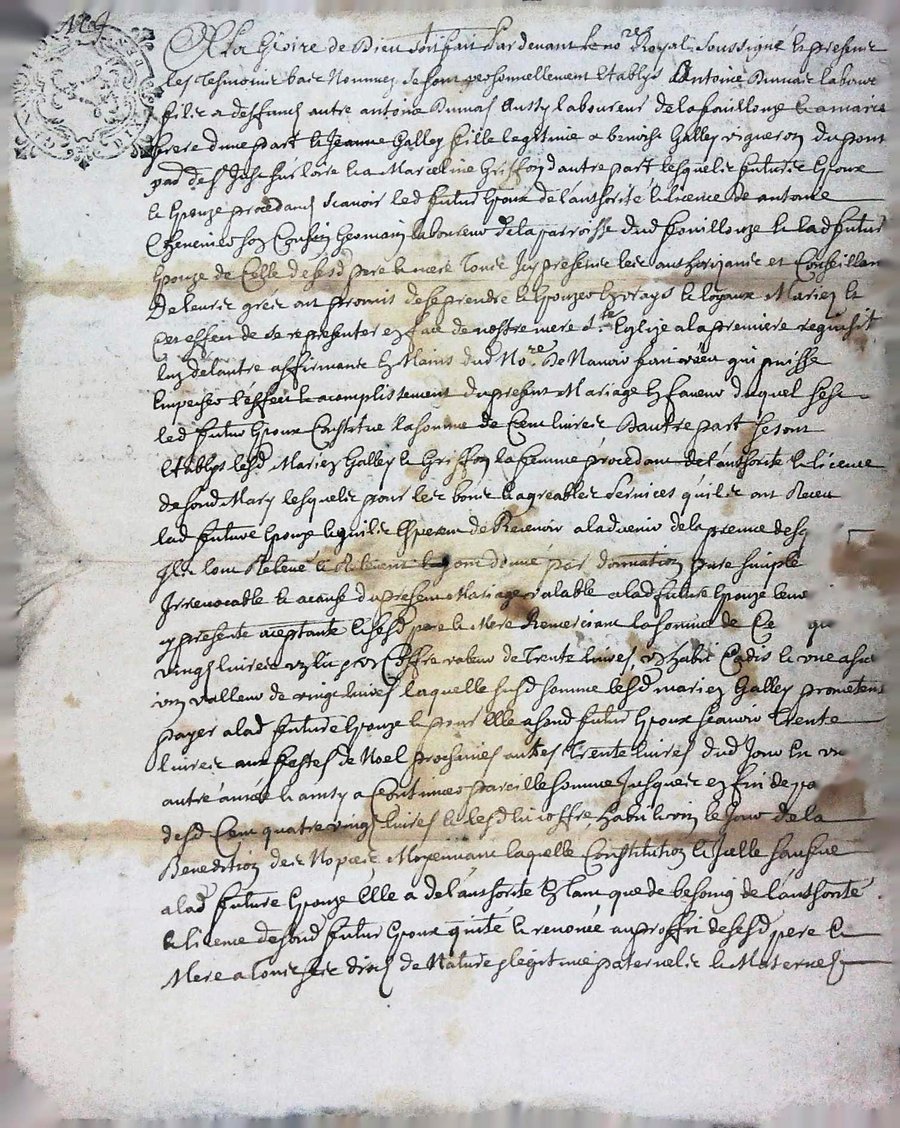 A la Gloire de Dieu soit fait Pardevant le no.re Royal soussigné et presens
les Tesmoins bas Nommez se sont personnellement establys Antoine Dumas laboure
fils a deffunct autre antoine Dumas aussy laboureur de la fouillouze
frere d'une part et Jeanne Galley fille legitime a benoist Galley vigneron du pont
par de St Just sur loire et a Marceline Griffon d'autre part lesquels futurs Epoux
et Epouze procedans scavoir led futur Epoux de l'authorité et licence de antoine
son Cousin Germain laboureur de la parroisse dud fouillouze et lad futur
Epouze de Celle de sesd pere et mere tous icy presens les authorizans et Conseillan
De leurs grez ont promis de se prendre et Epouzer en vrays et loyaux Mariez et
Cet effect de se representer en face de nostre mere ste Eglise a la premiere requisit
lun de lautre affirmants es Mains dud No.re De Navoir fait qui puisse
Empecher l'effect et acomplissement du present Mariage En faveur duquel sest
led futur Epoux Constitué la somme de Cent livres D'autre part se sont
Establys lesd Mariez Galley et Griffon la femme procedant de l'authorité et licence
de sond Mary lesquels pour les bons et agreables services qu'ils ont Receu
lad future Epouze et quils Esperent de Recevoir a ladvenir de la preuve desq
Ils lont Relevé et Relevent et ont donné par donnation pure simple
Irrevocable et a cause du present Mariage valable a lad future Epouze leur
y presente aceptante et sesd pere et Mere Remerciant la somme de Ce qu
vingt livres un lit Coffre valeur de Trente livres un habit Cadis et une asne
vin valleur de vingt livres laquelle susd somme lesd mariez Galley prometens
payer a lad future Epouze et pour Elle a sond futur Epoux scavoir Trente
livres aux festes de Noel prochaines autres Trente livres dud Jour En un
autre année et ainsy a Continuer pareille somme Jusques en fin de pa
desd Cent quatre vingt livres et lesd lit coffre habit et vin le Jour de la
Benediction des Nopces Moyennant laquelle Constitution et Icelle sauf
a lad future Epouze Elle a de l'authorité En tant que de besoing de l'authorité
et licence de sond futur Epoux quité et renoncé au proffit de sesd pere et
Mere a tous ses droits de Nature legitime paternels et Maternels